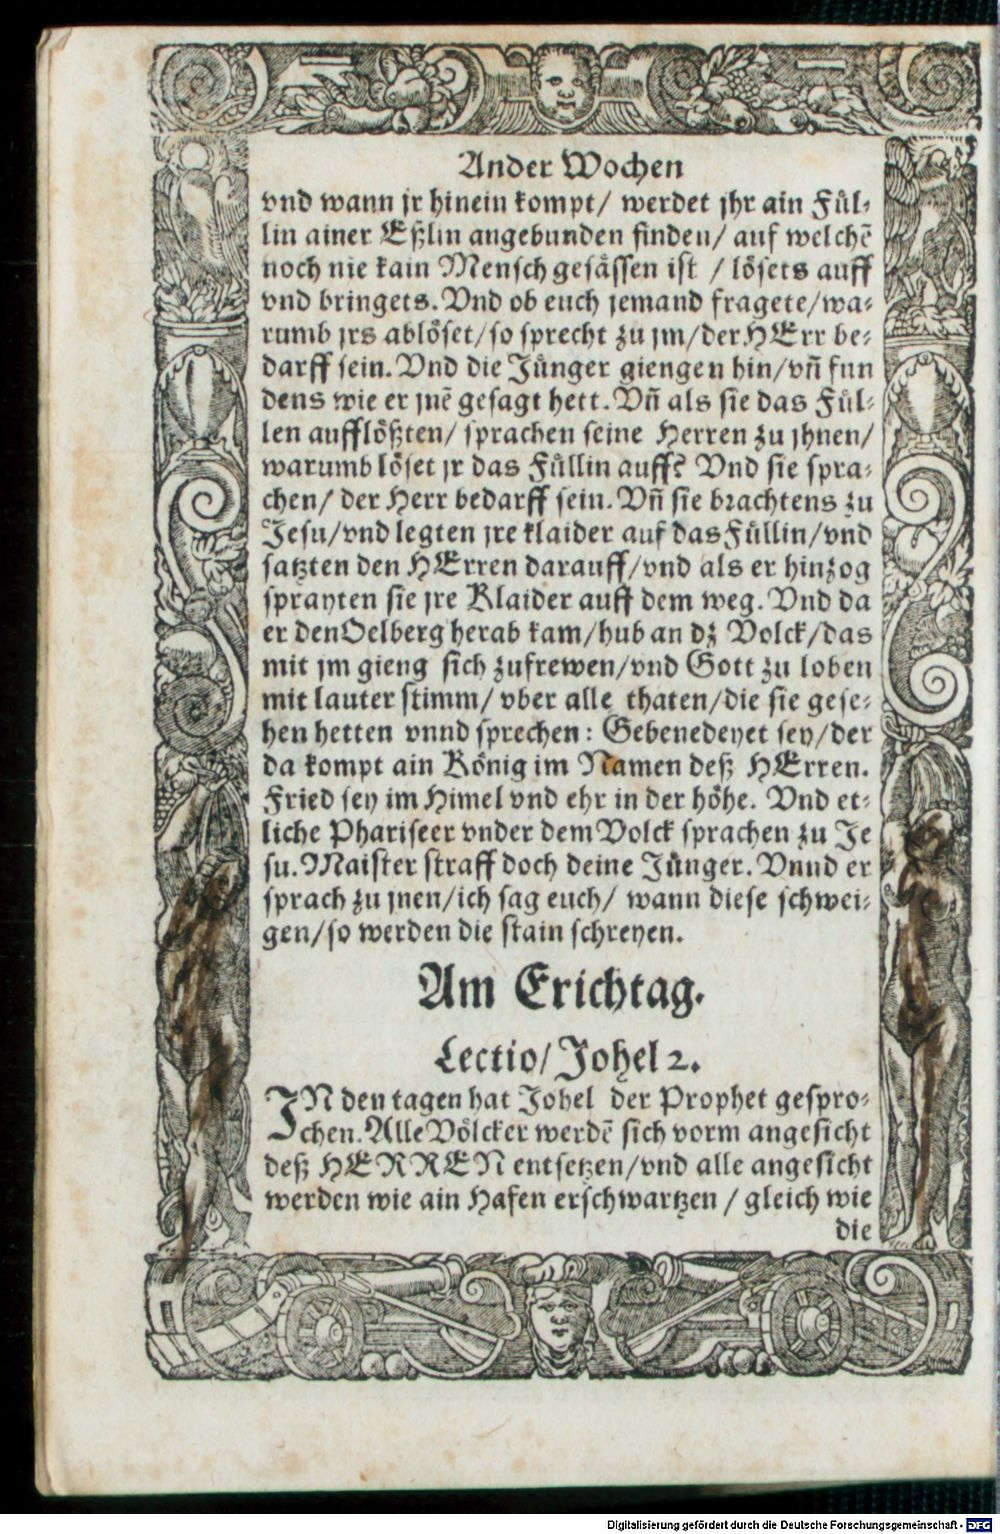 Ander Wochen
vnd wann jr hinein kompt/ werdet jhr ain Fül-
lin ainer Eßlin angebunden finden/ auf welchẽ
noch nie kain Mensch gesässen ist / lösets auff
vnd bringets. Vnd ob euch jemand fragete/wa-
rumb jrs ablöset/so sprecht zu jm/der HErr be-
darff sein. Vnd die Jünger giengen hin/vñ fun
dens wie er jnẽ gesagt hett. Vñ als sie das Fül-
len aufflößten/ sprachen seine Herren zu jhnen/
warumb löset jr das Füllin auff? Vnd sie spra-
chen/ der Herr bedarff sein. Vñ sie brachtens zu
Jesu/vnd legten jre klaider auf das Füllin/vnd
satzten den HErren darauff/vnd als er hinzog
sprayten sie jre Klaider auff dem weg. Vnd da
er den Oelberg herab kam/hub an dz Volck/das
mit jm gieng sich zufrewen/vnd Gott zu loben
mit lauter stimm/ vber alle thaten/die sie gese-
hen hetten vnnd sprechen: Gebenedeyet sey/der
da kompt ain König im Namen deß HErren.
Fried sey im Himel vnd ehr in der höhe. Vnd et-
liche Phariseer vnder dem Volck sprachen zu Je
su. Maister straff doch deine Jünger. Vnnd er
sprach zu jnen/ich sag euch/ wann diese schwei-
gen/so werden die stain schreyen.
Am Erichtag.
Lectio/Johel 2.
JN den tagen hat Johel der Prophet gespro-
chen. Alle Völcker werdẽ sich vorm angesicht
deß HERREN entsetzen/vnd alle angesicht
werden wie ain Hafen erschwartzen / gleich wie
die
Digitalisierung gefördert durch die Deutsche Forschungsgemeinschaft - DFG